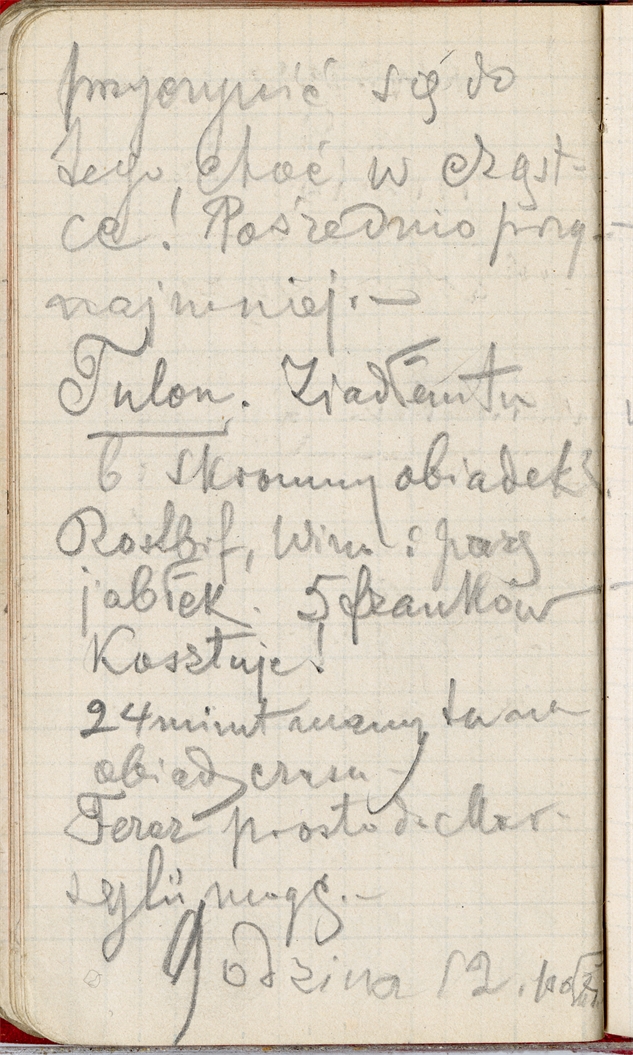 przyczynić się do
tego, choć w cząst-
ce! Pośrednio przy-
najmniej. —
Tulon. Zjadłem tu
b. skromny obiadek.
Rostbif, wino i parę
jabłek. 5 franków
Kosztuje!
24 minut mamy tu na
obiad czasu —
Teraz prosto do Mar-
sylii mogę. —
Godzina 12.